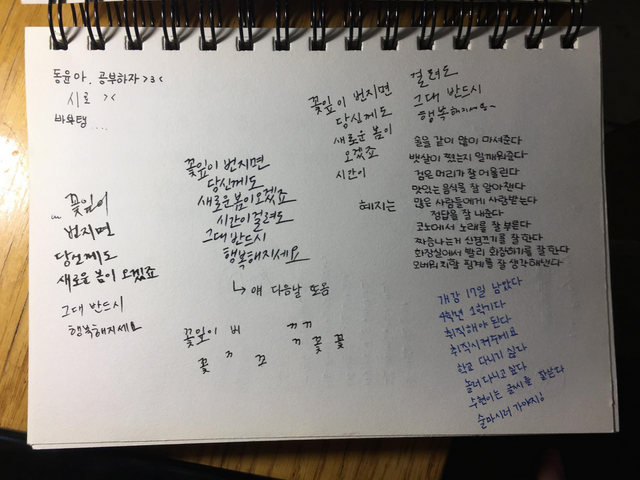 동윤아. 공부하자 >3<
시로 ><
바보탱 ...
꽃잎이
번지면
당신께도
새로운 봄이 오겠죠
그대 반드시
행복해지세요
꽃잎이 번지면
당신께도
새로운 봄이 오겠죠
시간이 걸려도
그대 반드시
행복해지세요
↳ 얘 다음날 또옴
꽃잎이 비 ㄲㄲ
꽃 ㄲ 꼬 ㄲ 꽃 꽃
꽃잎이 번지면
당신께도
새로운 봄이
오겠죠
시간이
걸려도
그대 반드시
행복해지세요~
혜지는
술을 같이 많이 마셔준다
뱃살이 쪘는지 일깨워준다
검은 머리가 잘 어울린다
맛있는 음식을 잘 알아낸다
많은 사람들에게 사랑받는다
정답을 잘 내준다
코노에서 노래를 잘 부른다
짜증나는거 신경끄기를 잘 한다
화장실에서 빨리 화장하기를 잘 한다
오버워치할 핑계를 잘 생각해낸다
개강 17일 남았다
4학년 1학기다
취직해야 된다
취직시켜주세요
학교 다니기 싫다
놀러 다니고 싶다
수현이는 글씨를 잘쓴다
술마시러 가야지!